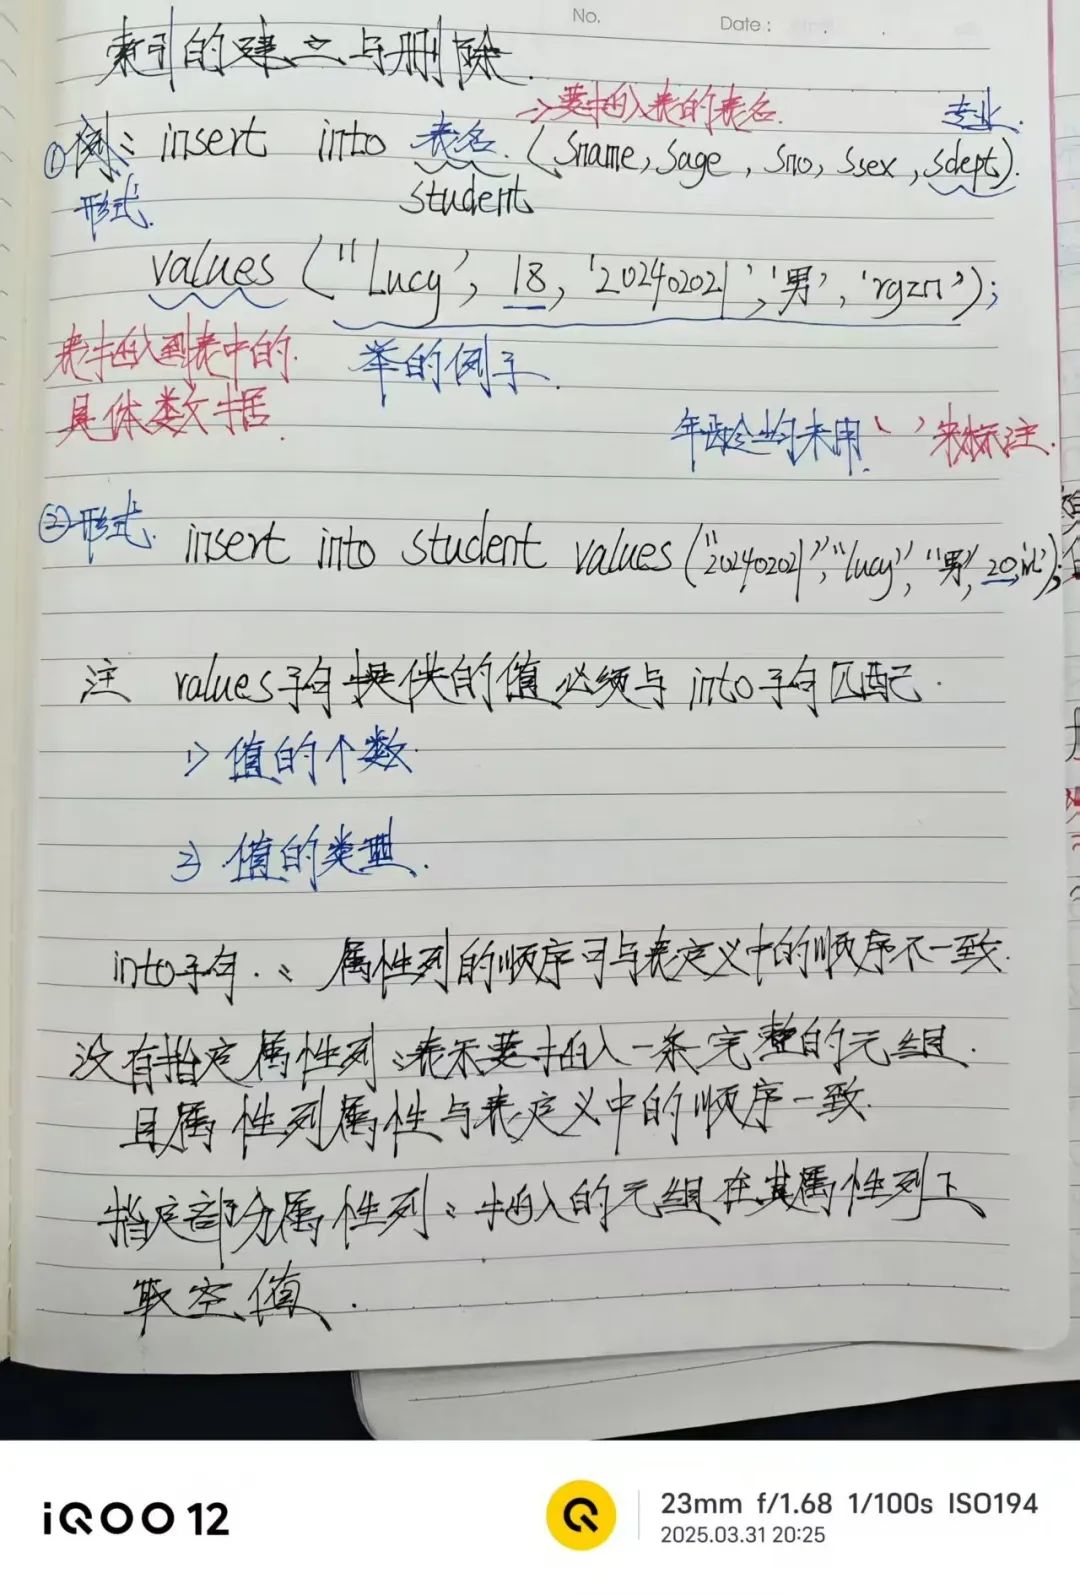 No.
Date:
索引的建立与删除.
→要插入表的表名.
专业.
①例: insert into 表名. (Sname, Sage, Sno, Ssex, Sdept).
形式. student
values ("Lucy', 18, '202402021', '男', 'rgzn');
表插入到表中的.
举的例子.
具体数据.
年龄均未用 ' ' 来标注.
②形式. insert into student values ("202402021", "lucy", "男", 20,
注 values子句提供的值必须与 into子句匹配.
1) 值的个数.
2) 值的类型.
into子句.: 属性列的顺序可与表定义中的顺序不一致.
没有指定属性列:表示要插入一条完整的元组.
且属性列属性与表定义中的顺序一致.
指定部分属性列: 插入的元组在其属性列下
取空值.
iQOO 12
23mm f/1.68 1/100s ISO194
2025.03.31 20:25